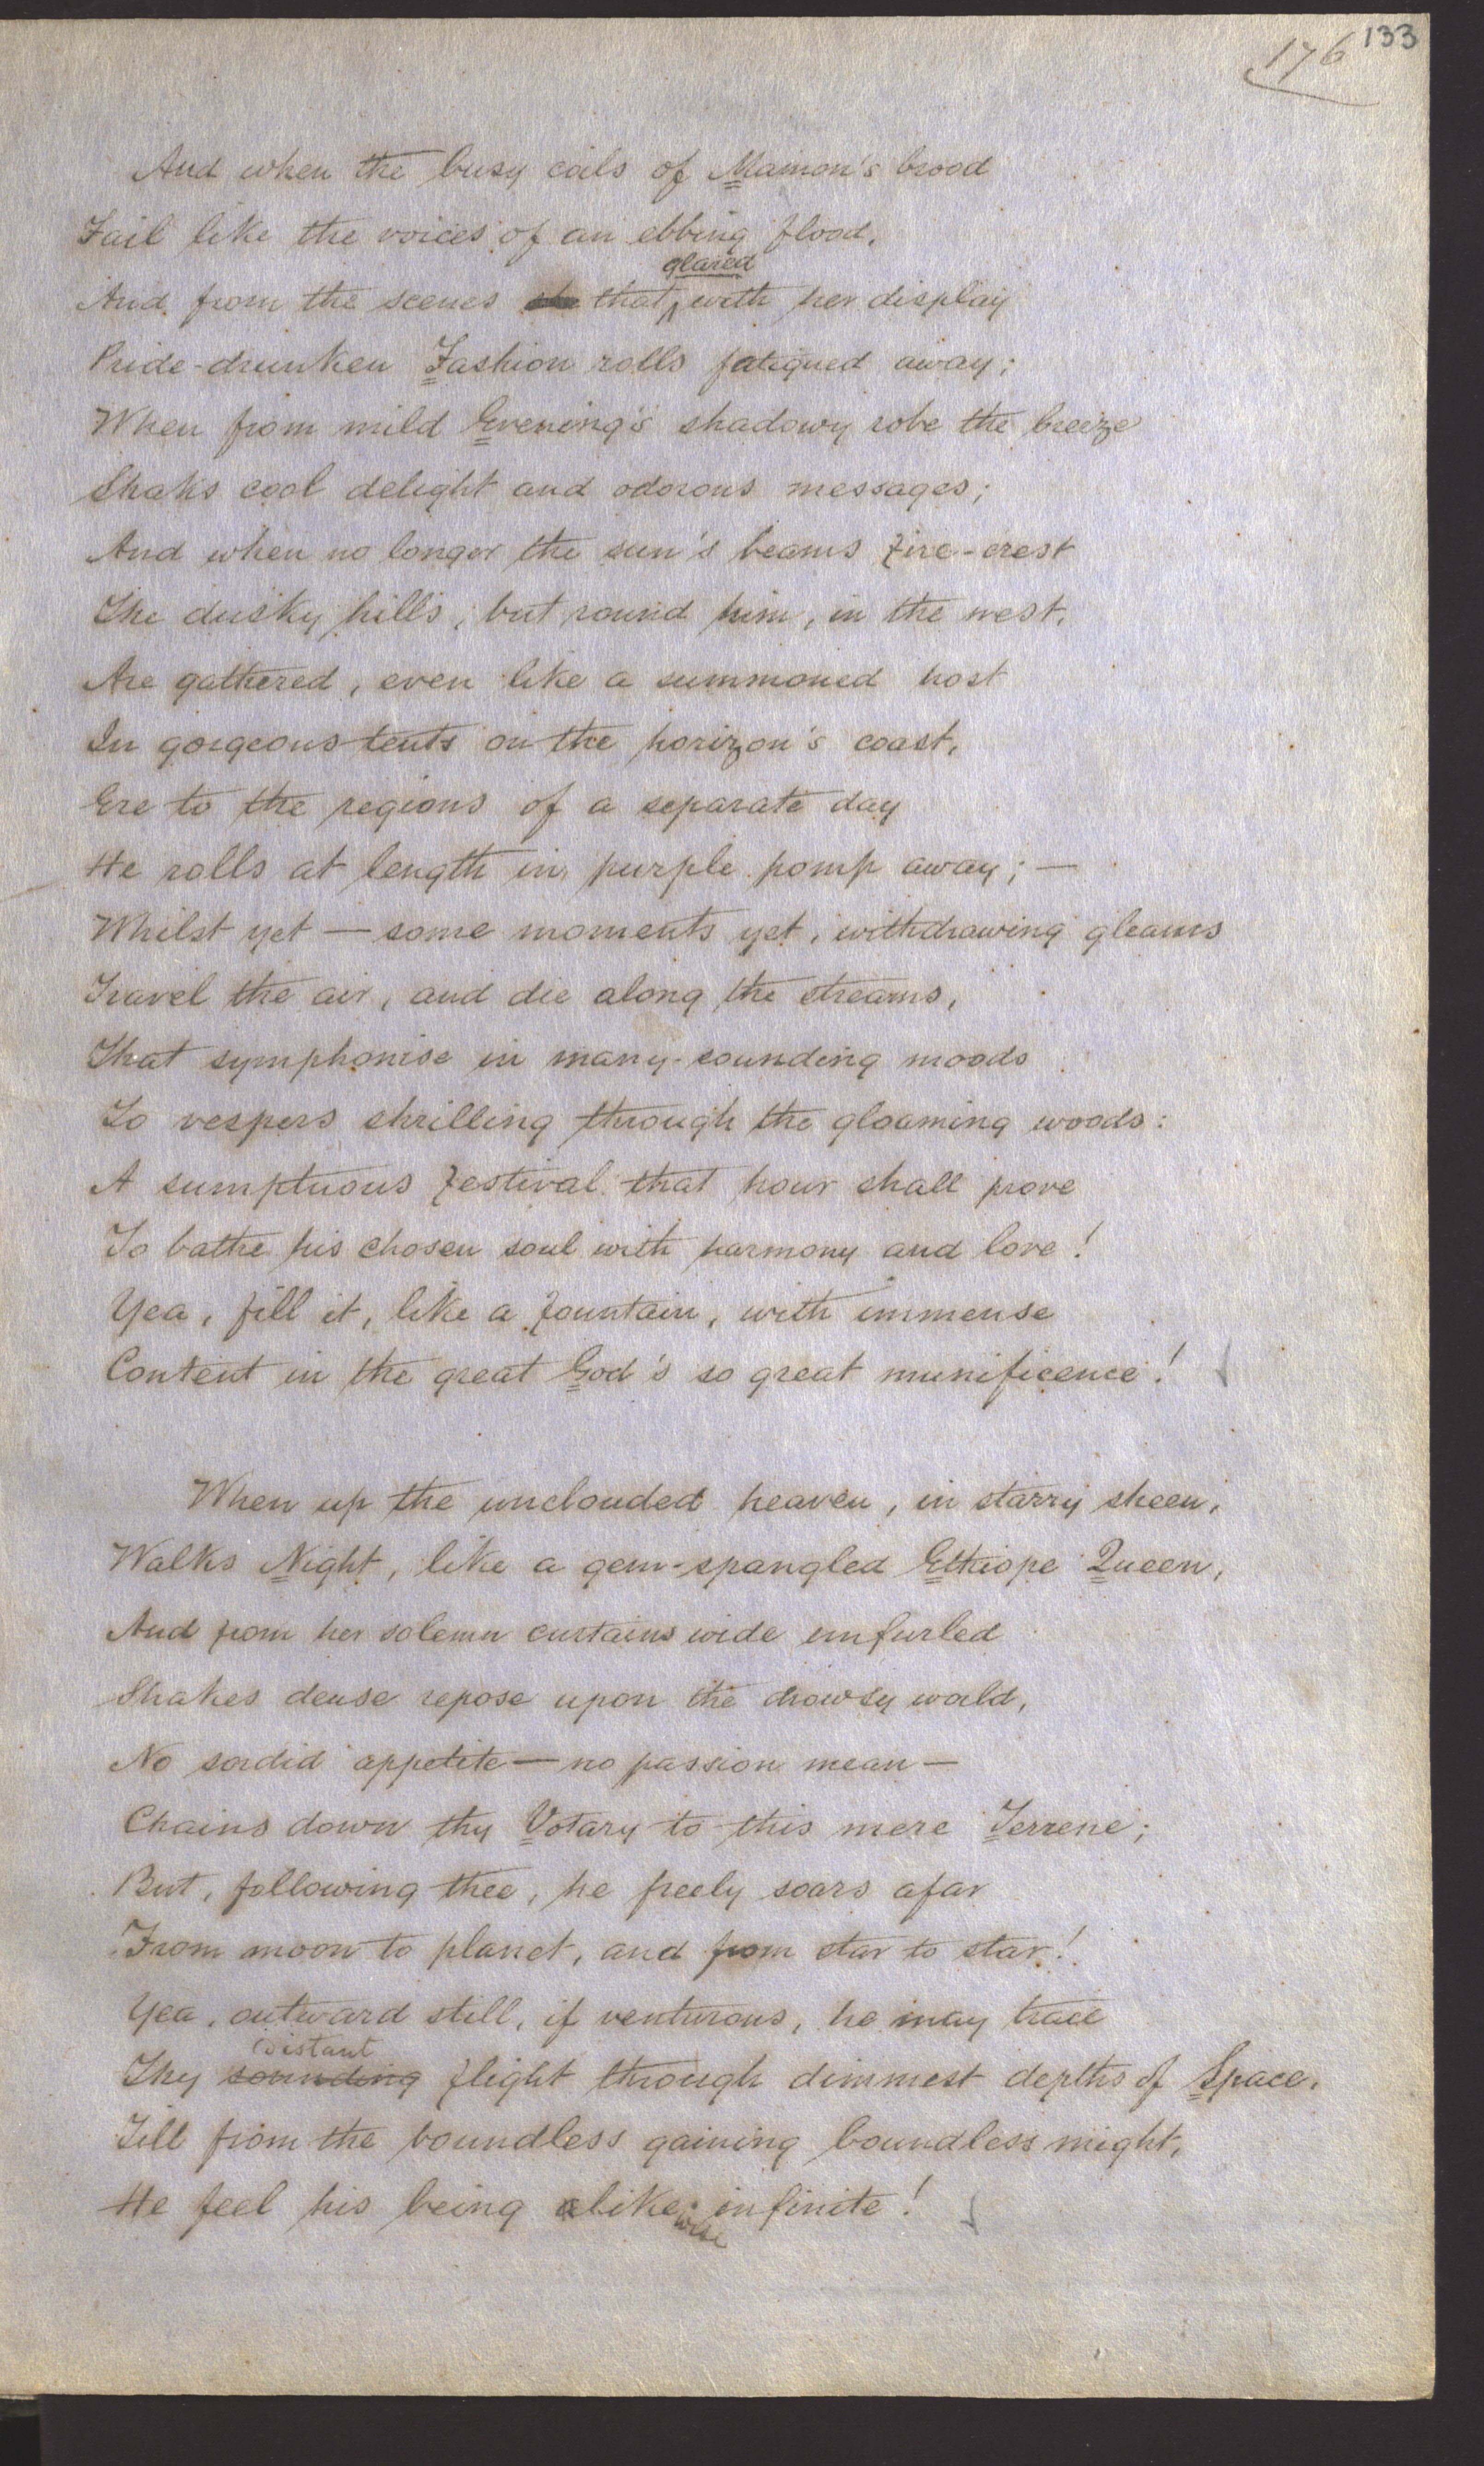 133
176
And when the busy coils of Mamon's brood
Fail like the voices of an ebbing flood,
glared
And from the scenes that with her display
Pride-drunken Fashion rolls fatigued away;
When from mild Evening's shadowy robe the breeze
Shaks cool delight and odorous messages;
And when no longer the sun's beams fire-crest
The dusky hills, but round him, in the west,
Are gathered, even like a summoned host
In gorgeous tents on the horizon's coast,
Ere to the regions of a separate day
He rolls at length in purple pomp away; —
Whilst yet — some moments yet, withdrawing gleams
Travel the air, and die along the streams,
That symphonise in many-sounding moods
To vespers shrilling through the gloaming woods:
A sumptuous festival that hour shall prove
To bathe his chosen soul with harmony and love!
Yea, fill it, like a fountain, with immense
Content in the great God's so great munificence!
When up the unclouded heaven, in starry sheen,
Walks Night, like a gem-spangled Ethiope Queen,
And from her solemn curtains wide unfurled
Shakes dense repose upon the drowsy world,
No sordid appetite — no passion mean —
Chains down thy Votary to this mere Terrene;
But, following thee, he freely soars afar
From moon to planet, and from star to star!
Yea, outward still, if venturous, he may trace
distant
Thy sounding flight through dimmest depths of Space,
Till from the boundless gaining boundless might,
He feel his being alike infinite!
wise